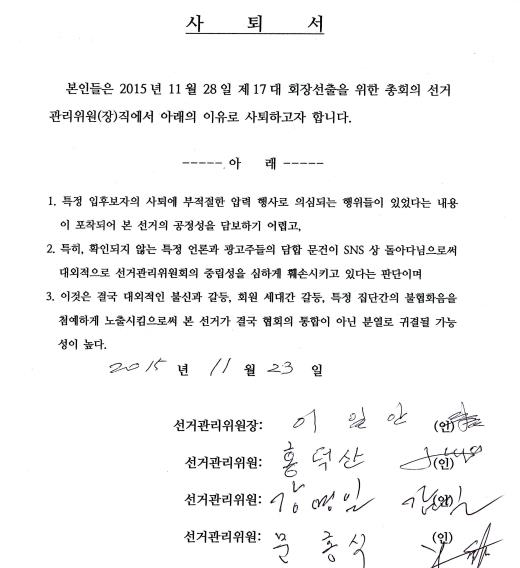 사 퇴 서
본인들은 2015년 11월 28일 제17대 회장선출을 위한 총회의 선거
관리위원(장)직에서 아래의 이유로 사퇴하고자 합니다.
-----아 래-----
1. 특정 입후보자의 사퇴에 부적절한 압력 행사로 의심되는 행위들이 있었다는 내용
이 포착되어 본 선거의 공정성을 담보하기 어렵고,
2. 특히, 확인되지 않는 특정 언론과 광고주들의 담합 문건이 SNS 상 돌아다님으로써
대외적으로 선거관리위원회의 중립성을 심하게 훼손시키고 있다는 판단이며
3. 이것은 결국 대외적인 불신과 갈등, 회원 세대간 갈등, 특정 집단간의 불협화음을
첨예하게 노출시킴으로써 본 선거가 결국 협회의 통합이 아닌 분열로 귀결될 가능
성이 높다.
2015 년 11 월 23 일
선거관리위원장: 이 일 안 (인)
선거관리위원: 홍 덕 산 (인)
선거관리위원: 강 명 일 (인)
선거관리위원: 문 홍 식 (인)